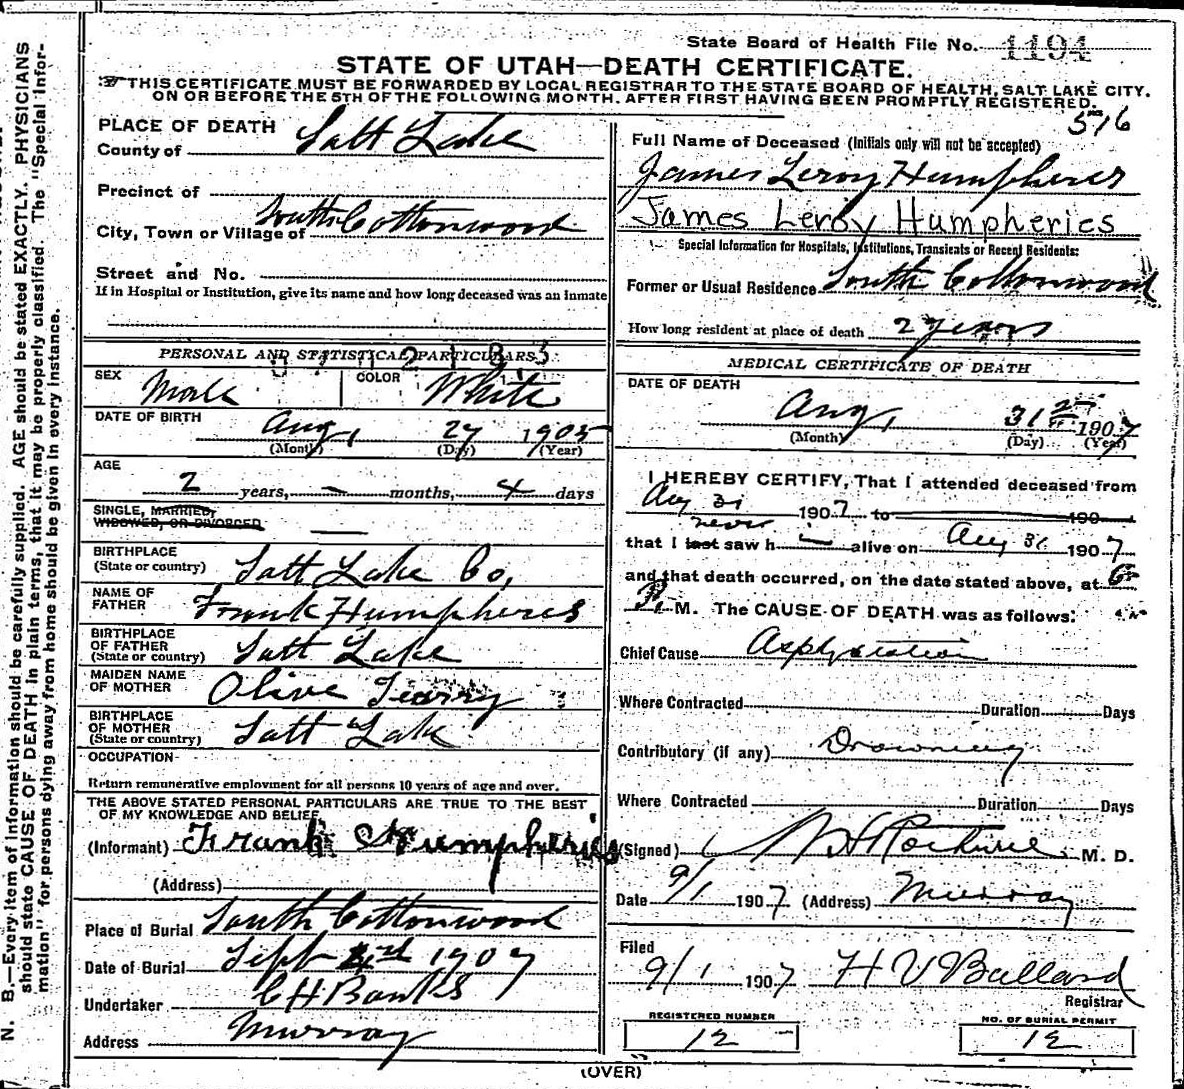 State Board of Health File No. 1194
STATE OF UTAH—DEATH CERTIFICATE.
THIS CERTIFICATE MUST BE FORWARDED BY LOCAL REGISTRAR TO THE STATE BOARD OF HEALTH, SALT LAKE CITY.
ON OR BEFORE THE 5TH OF THE FOLLOWING MONTH. AFTER FIRST HAVING BEEN PROMPTLY REGISTERED.
N. B.—Every item of information should be carefully supplied. AGE should be stated EXACTLY. PHYSICIANS
should state CAUSE OF DEATH in plain terms, that it may be properly classified. The "Special Infor-
mation" for persons dying away from home should be given in every instance.
PLACE OF DEATH
County of Salt Lake
Precinct of
City, Town or Village of South Cottonwood
Street and No.
If in Hospital or Institution, give its name and how long deceased was an inmate
PERSONAL AND STATISTICAL PARTICULARS
SEX Male COLOR White
DATE OF BIRTH Aug, 27 1905
(Month) (Day) (Year)
AGE
2 years, — months, 4 days
SINGLE, MARRIED,
WIDOWED, OR DIVORCED —
BIRTHPLACE
(State or country) Salt Lake Co,
NAME OF
FATHER Frank Humpheres
BIRTHPLACE
OF FATHER
(State or country) Salt Lake
MAIDEN NAME
OF MOTHER Olive
BIRTHPLACE
OF MOTHER
(State or country) Salt Lake
OCCUPATION
Return remunerative employment for all persons 10 years of age and over.
THE ABOVE STATED PERSONAL PARTICULARS ARE TRUE TO THE BEST
OF MY KNOWLEDGE AND BELIEF
(Informant) Frank Humpheries
(Address)
Place of Burial South Cottonwood
Date of Burial Sept 1907
Undertaker C H Banks
Address Murray
516
Full Name of Deceased (Initials only will not be accepted)
James Leroy Humpheres
James Leroy Humpheries
Special Information for Hospitals, Institutions, Transients or Recent Residents:
Former or Usual Residence South Cottonwood
How long resident at place of death 2 years
MEDICAL CERTIFICATE OF DEATH
DATE OF DEATH
Aug, 31 1907
(Month) (Day) (Year)
I HEREBY CERTIFY, That I attended deceased from
Aug 31 1907 to 190
never
that I last saw h alive on Aug 31 1907
and that death occurred, on the date stated above, at 6
P. M. The CAUSE OF DEATH was as follows:
Chief Cause Asphyxiation
Where Contracted Duration Days
Contributory (if any) Drowning
Where Contracted Duration Days
(Signed) M. D.
Date 9/1 1907 (Address) Murray
Filed
9/1 1907 H V Ballard
Registrar
REGISTERED NUMBER
12
NO. OF BURIAL PERMIT
12
(OVER)